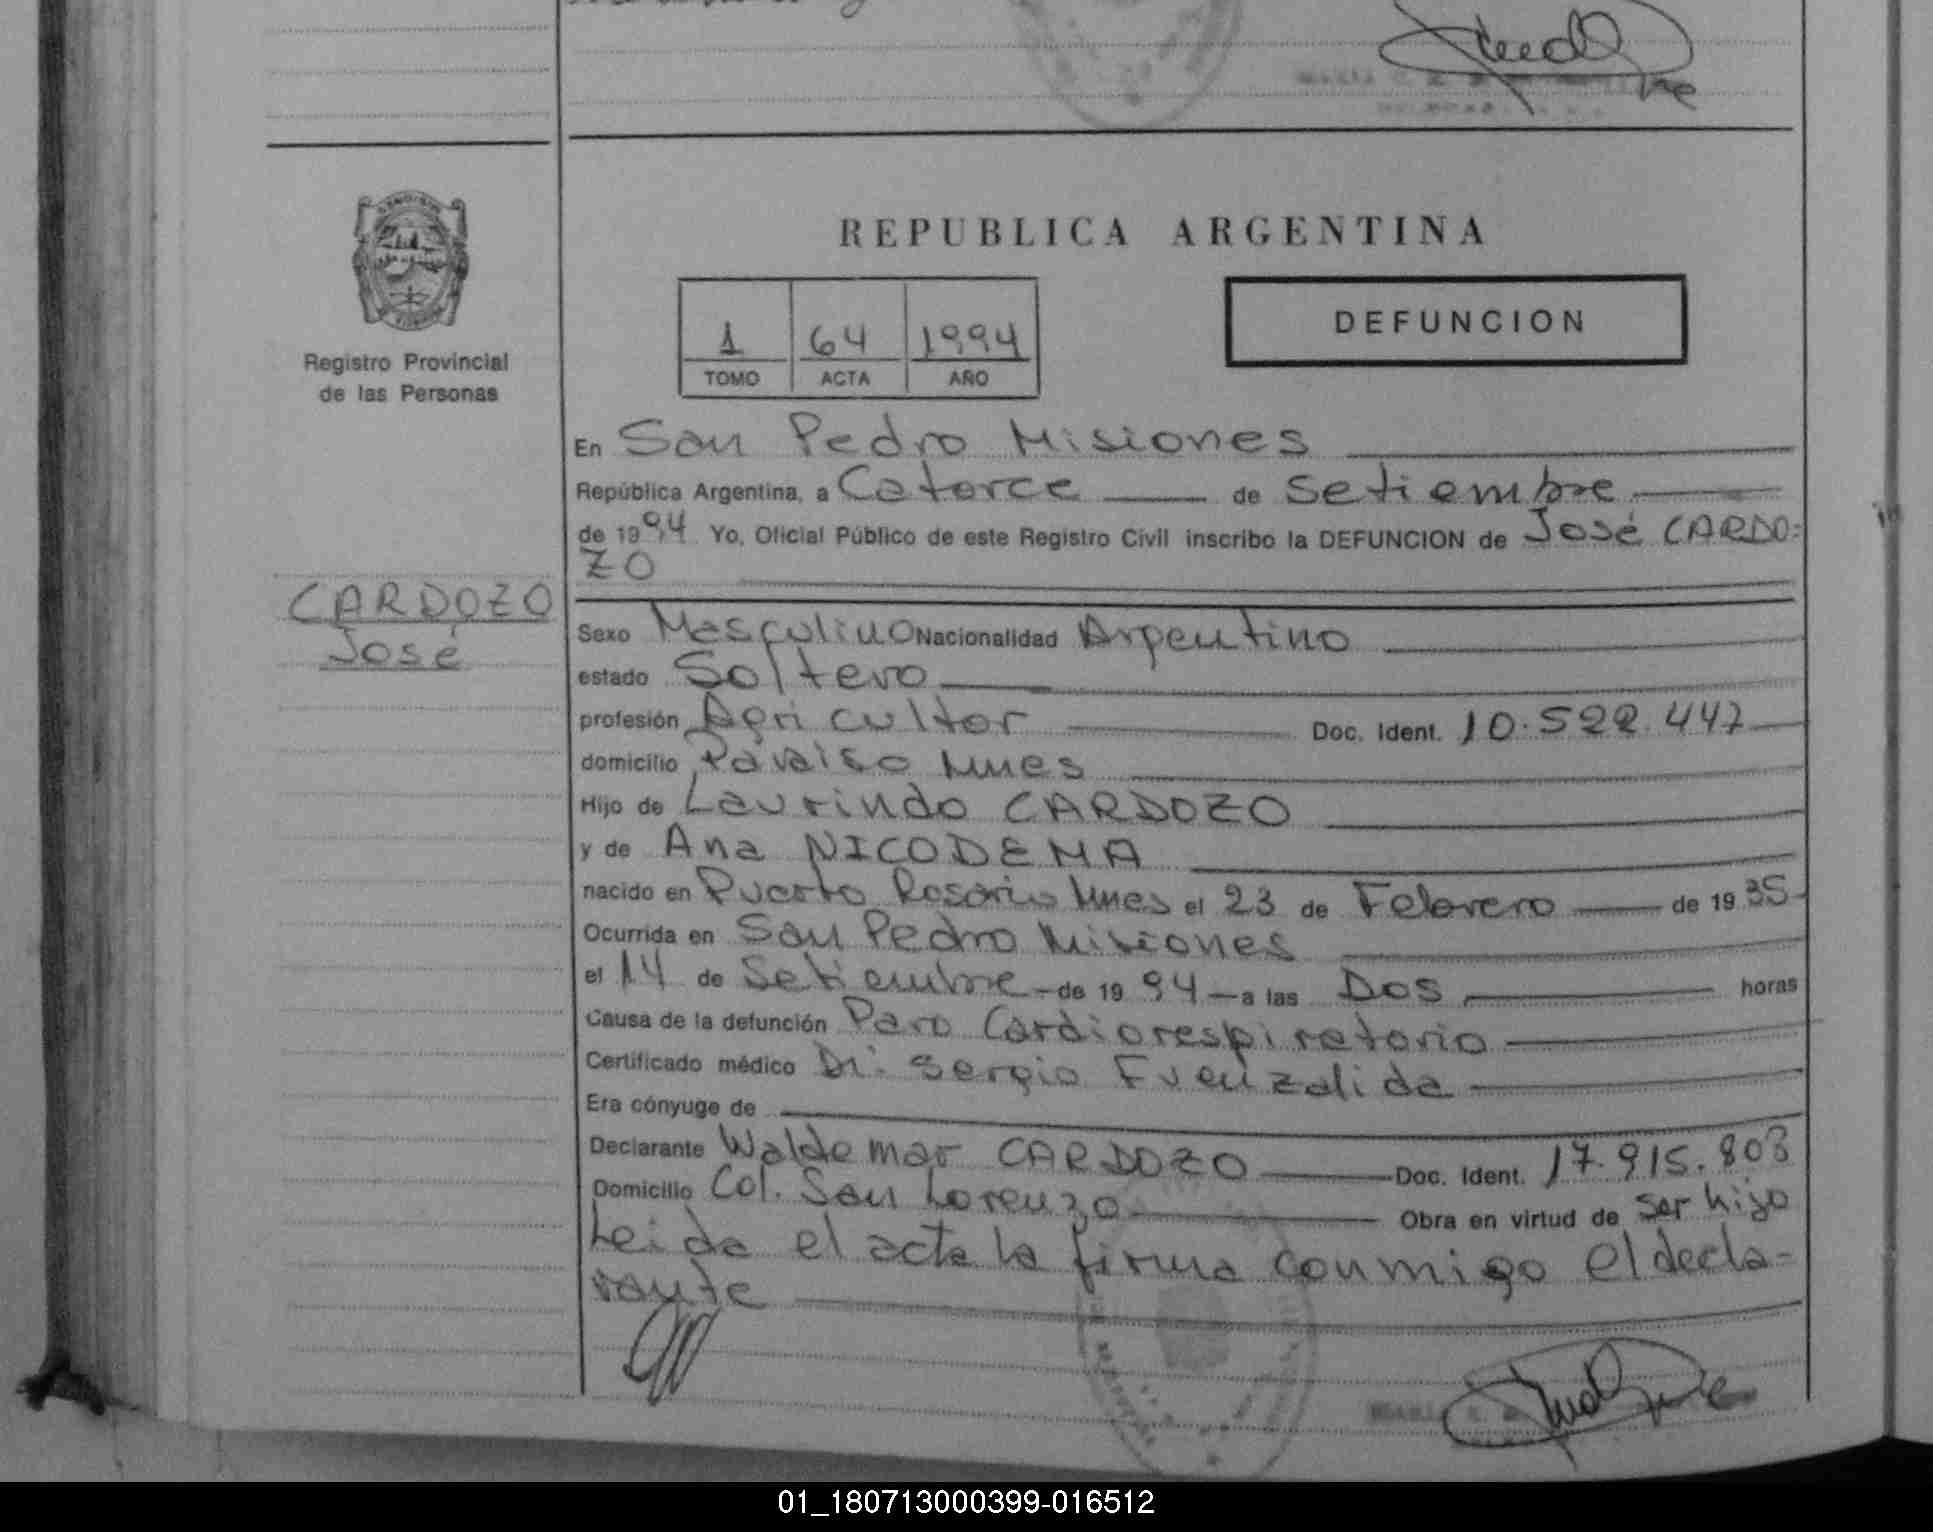 REPUBLICA ARGENTINA
DEFUNCION
1 64 1994
TOMO ACTA AÑO
Registro Provincial
de las Personas
CARDOZO
José
En San Pedro Misiones
República Argentina, a Catorce de Setiembre
de 1994 Yo, Oficial Público de este Registro Civil inscribo la DEFUNCION de José CARDO-
ZO
Sexo Masculino Nacionalidad Argentino
estado Soltero
profesión Agricultor Doc. Ident. 10.522.447
domicilio Paraiso Mnes
Hijo de Laurindo CARDOZO
y de Ana NICODEMA
nacido en Puerto Rosario Mnes el 23 de Febrero de 1935
Ocurrida en San Pedro Misiones
el 14 de Setiembre de 1994 a las Dos horas
Causa de la defunción Paro Cardiorespiratorio
Certificado médico Dr. Sergio Fuenzalida
Era cónyuge de
Declarante Waldemar CARDOZO Doc. Ident. 17.915.803
Domicilio Col. San Lorenzo Obra en virtud de ser hijo
Leida el acta la firma conmigo el decla-
rante
01_180713000399-016512